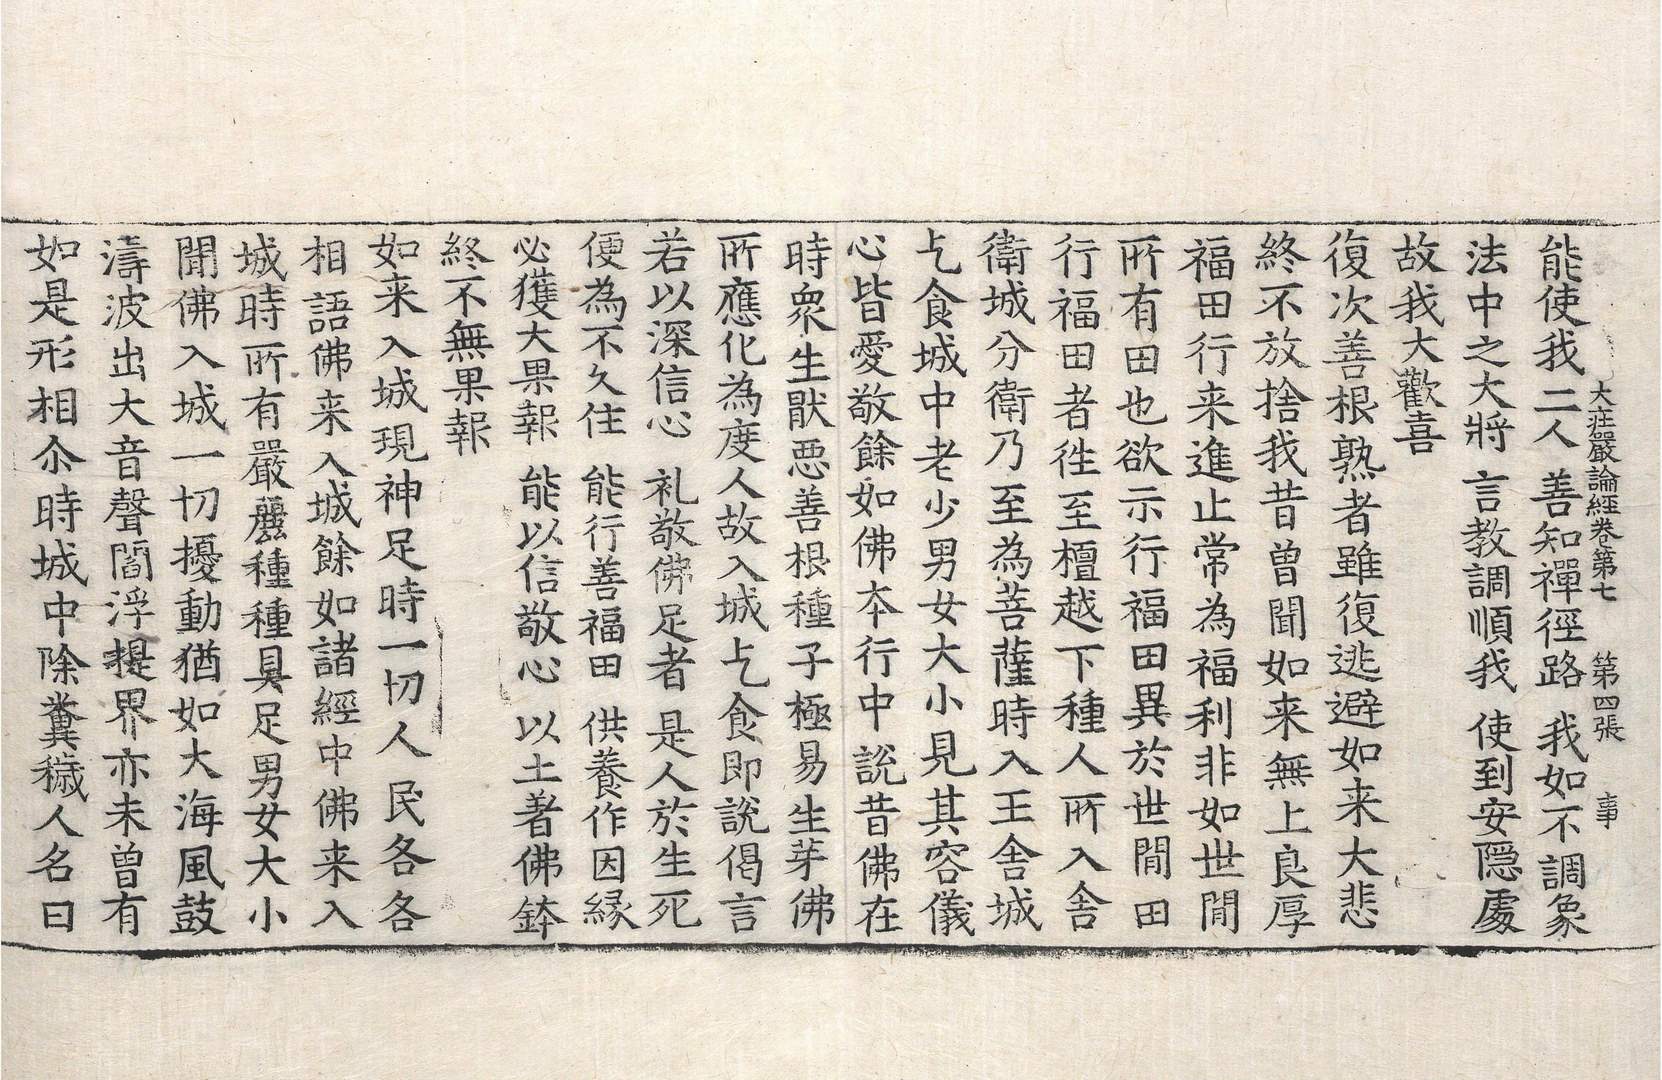 大庄嚴論經卷第七　第四張　事
能使我二人　善知禪徑路　我如不調象
法中之大將　言教調順我　使到安隱處
故我大歡喜
復次善根熟者雖復逃避如来大悲
終不放捨我昔曾聞如来無上良厚
福田行来進止常為福利非如世閒
所有田也欲示行福田異於世間田
行福田者徃至檀越下種人所入舎
衛城分衛乃至為菩薩時入王舎城
乞食城中老少男女大小見其容儀
心皆愛敬餘如佛夲行中說昔佛在
時衆生猒惡善根種子極易生芽佛
所應化為度人故入城乞食即說偈言
若以深信心　礼敬佛足者　是人於生死
便為不久住　能行善福田　供養作因縁
必獲大果報　能以信敬心　以土著佛鉢
終不無果報
如来入城現神足時一切人民各各
相語佛来入城餘如諸經中佛来入
城時所有嚴麗種種具足男女大小
聞佛入城一切擾動猶如大海風鼓
濤波出大音聲閻浮提界亦未曾有
如是形相尒時城中除糞穢人名曰